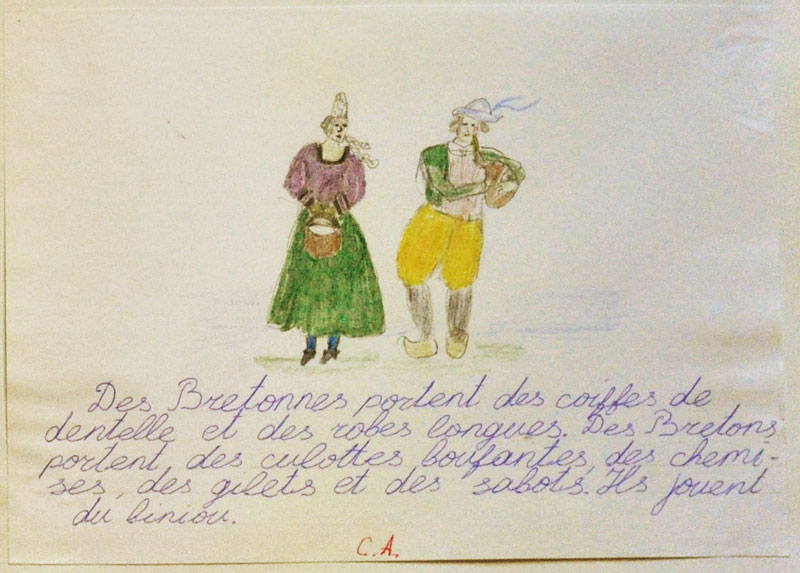 Des Bretonnes portent des coiffes de
dentelle et des robes longues. Des Bretons
portent des culottes boufantes, des chemi-
ses, des gilets et des sabots. Ils jouent
du biniou.
C.A.